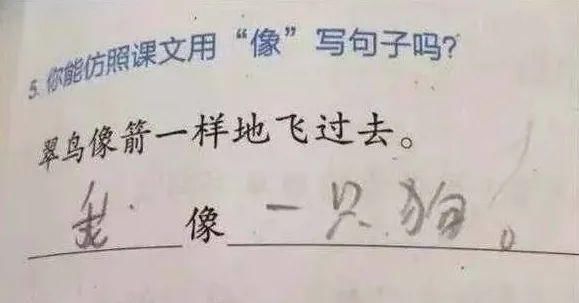 5.你能仿照课文用“像”写句子吗?
翠鸟像箭一样地飞过去。
像一只狗。